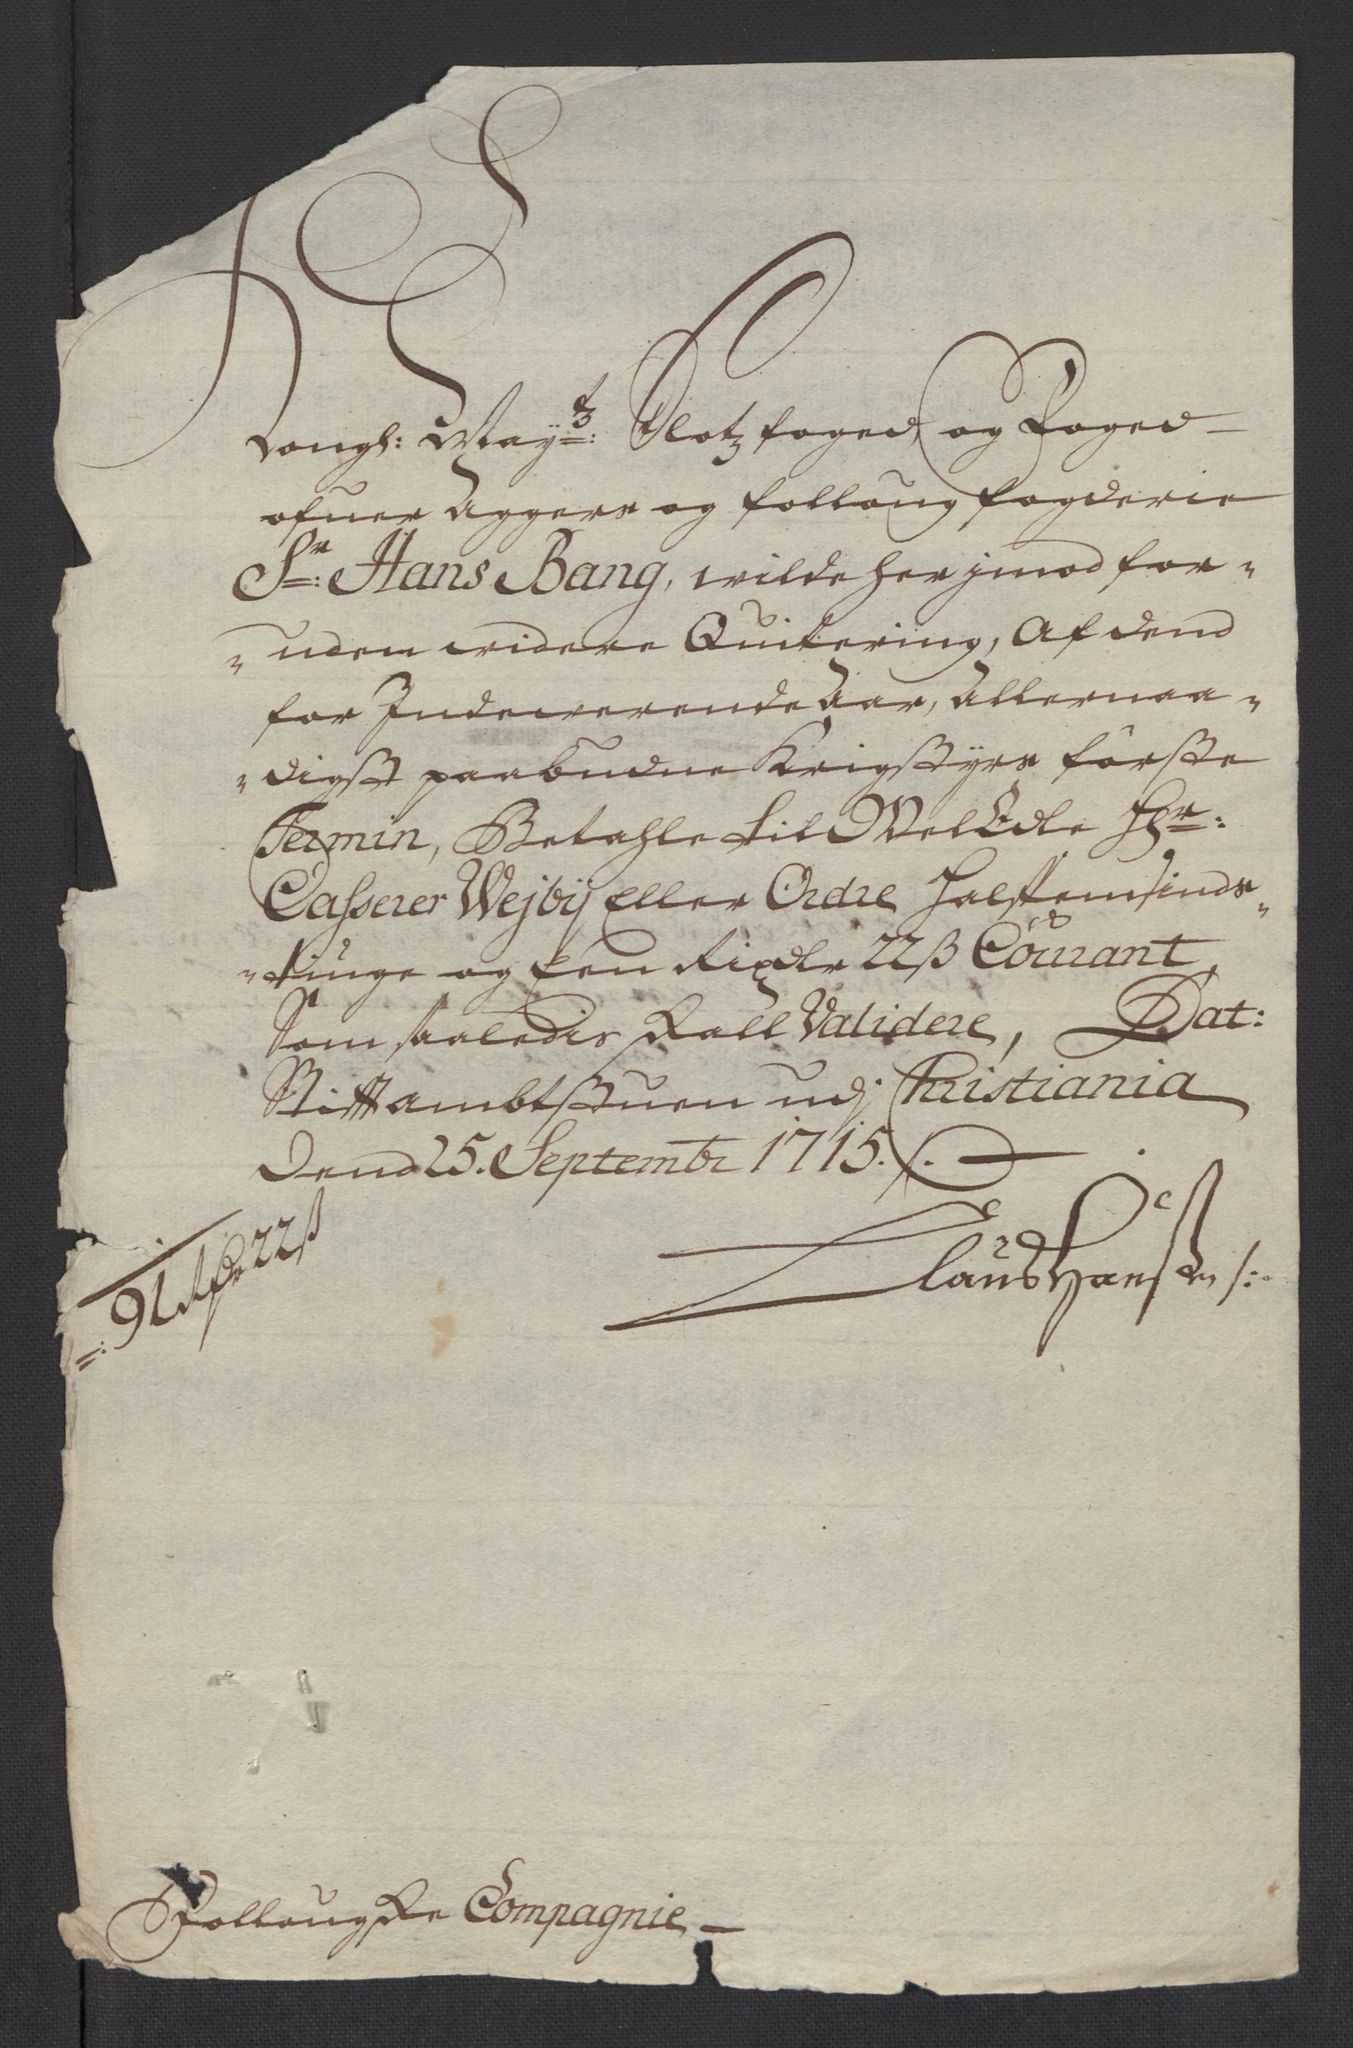 Kongl: May:tz Slotzfoged, og Foged
ofuer Aggers og folloug fogderie
Sr: Hans Bang, wilde her jmod for-
uden widere Quitering, Af dend
for Indewerende Aar, Allernaa-
digst paabudne Krigstyrs förste
Termin, Betahle til WelEdle Hr:
Casserer Wejbÿ Eller Ordre Halffemsinds-
tiuge og Een Rixdlr 22ß Courant,
Som saaledis skall Validere, Dat:
Stiftambtstuen udj Christiania
Dend 25. Septembr 1715. /.
Claus Hansen /:
=: 91 Rdr 22ß
Follougske Compagnie